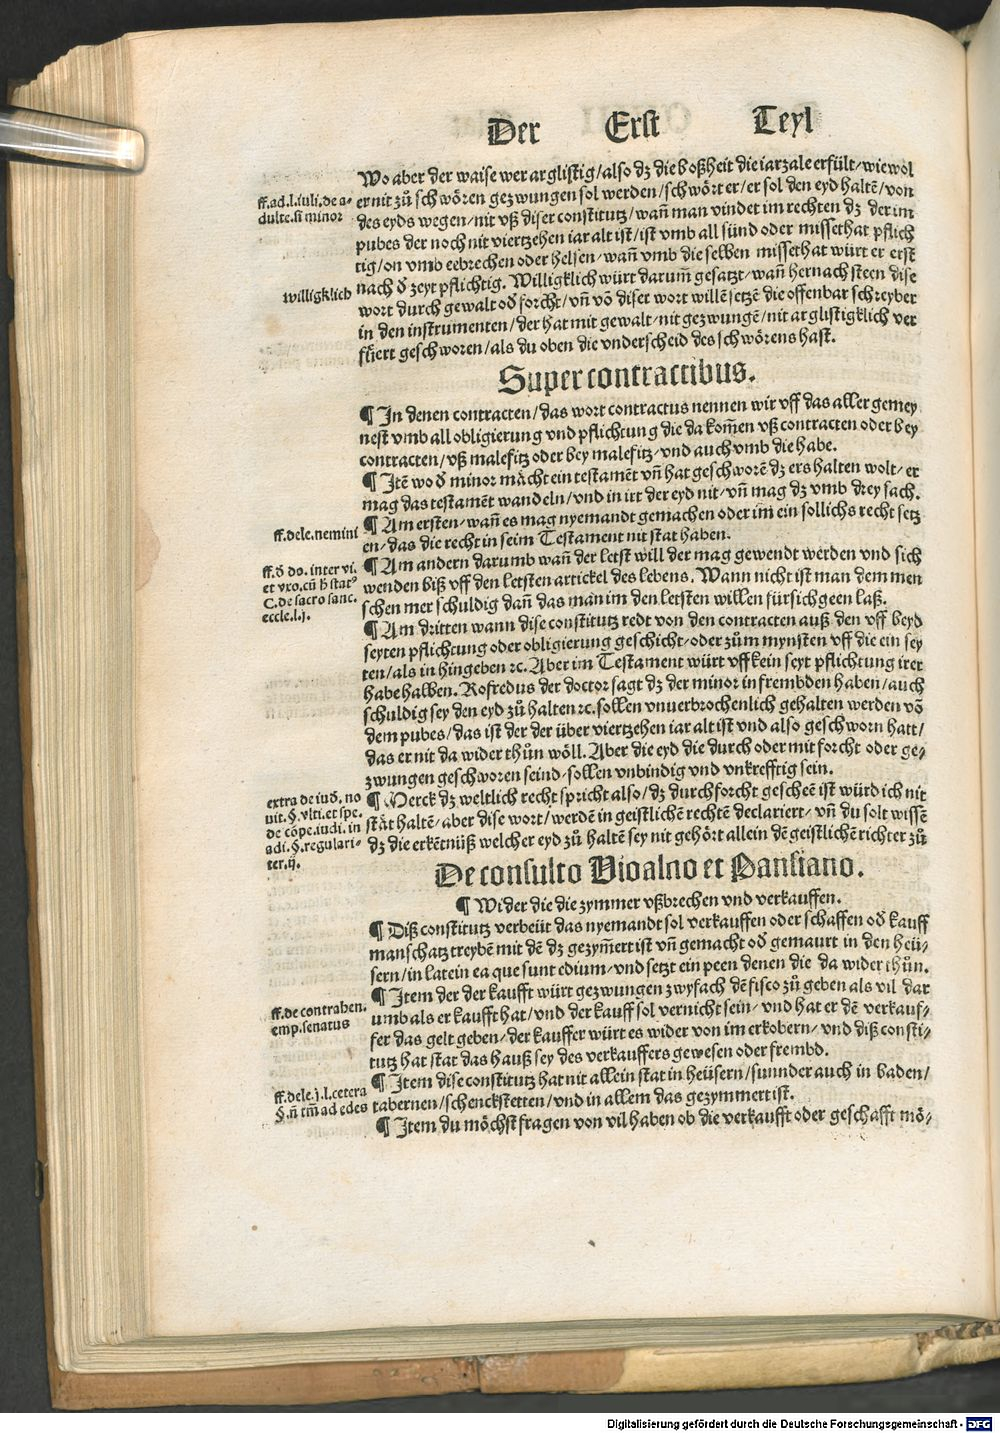 Der Erst Teyl
Wo aber der waise wer arglistig/also dz die boßheit die iarzale erfült/wiewol
er nit zů schwören gezwungen sol werden/schwört er/er sol den eyd haltē/von
des eyds wegen/nit vß diser constitutz/wañ man vindet im rechten dz der im
pubes der noch nit viertzehen iar alt ist/ist vmb all sünd oder missethat pflich
tig/on vmb eebrechen oder helsen/wañ vmb die selben missethat würt er erst
nach d̄ zeyt pflichtig. Willigklich würt darum̄ gesatzt/wañ hernach steen dise
wort durch gewalt od̄ forcht/vñ vō diser wort willē setzē die offenbar schreyber
in den instrumenten/der hat mit gewalt/nit gezwungē/nit arglistigklich ver
fiert geschworen/als du oben die vnderscheid des schwörens hast.
ff.ad.l.iuli.de a-
dulte.si minor
willigklich
Super contractibus.
¶ In denen contracten/das wort contractus nennen wir vff das aller gemey
nest vmb all obligierung vnd pflichtung die da kom̄en vß contracten oder bey
contracten/vß malefitz oder bey malefitz/vnd auch vmb die habe.
¶ Itē wo d̄ minor mächt ein testamēt vñ hat geschworē dz ers halten wolt/er
mag das testamēt wandeln/vnd in irt der eyd nit/vñ mag dz vmb drey sach.
¶ Am ersten/wañ es mag nyemandt gemachen oder im ein sollichs recht setz
en/das die recht in seim Testament nit stat haben.
¶ Am andern darumb wañ der letst will der mag gewendt werden vnd sich
wenden biß vff den letsten artickel des lebens. Wann nicht ist man dem men
schen mer schuldig dañ das man im den letsten willen für sich geen laß.
¶ Am dritten wann dise constitutz redt von den contracten auß den vff beyd
seyten pflichtung oder obligierung geschicht/oder zům mynsten vff die ein sey
ten/als in hingeben ꝛc. Aber im Testament würt vff kein seyt pflichtung irer
habe halben. Rofredus der doctor sagt dz der minor in frembden haben/auch
schuldig sey den eyd zů halten ꝛc. sollen vnuerbrochenlich gehalten werden vō
dem pubes/das ist der der über viertzehen iar alt ist vnd also geschworn hatt/
das er nit da wider thůn wöll. Aber die eyd die durch oder mit forcht oder ge-
zwungen geschworen seind/sollen vnbindig vnd vnkrefftig sein.
¶ Merck dz weltlich recht spricht also/dz durch forcht gescheē ist würd ich nit
stät haltē/aber dise wort/werdē in geistlichē rechtē declariert/vñ du solt wissē
dz die erkētnüß welcher eyd zů haltē sey nit gehört allein dē geistlichē richter zů
ff.de le.nemini
ff.d̄ do.inter vi.
et vxo.cū h̄ statꝰ
C.de sacro sanc.
eccle.l.j.
extra de iud̄.no
uit.§.vlti.et spe.
de cōpe.iudi.in
adi.§.regulari-
ter.ij.
De consulto Vioalno et Pansiano.
¶ Wider die die zymmer vßbrechen vnd verkauffen.
¶ Diß constitutz verbeüt das nyemandt sol verkauffen oder schaffen od̄ kauff
manschatz treybē mit dē dz gezym̄ert ist vñ gemacht od̄ gemaurt in den heü-
sern/in latein ea que sunt edium/vnd setzt ein peen denen die da wider thůn.
¶ Item der der kaufft würt gezwungen zwyfach dē fisco zů geben als vil dar
umb als er kaufft hat/vnd der kauff sol vernicht sein/vnd hat er dē verkauf-
fer das gelt geben/der kauffer würt es wider von im erkobern/vnd diß consti-
tutz hat stat das hauß sey des verkauffers gewesen oder frembd.
¶ Item dise constitutz hat nit allein stat in heüsern/sunnder auch in baden/
tabernen/schenckstetten/vnd in allem das gezymmert ist.
¶ Item du möchst fragen von vil haben ob die verkaufft oder geschafft mö-
ff.de contraben.
emp.senatus
ff.de le.j.l.cetera
§.ñ tm̄ ad edes
Digitalisierung gefördert durch die Deutsche Forschungsgemeinschaft - DFG